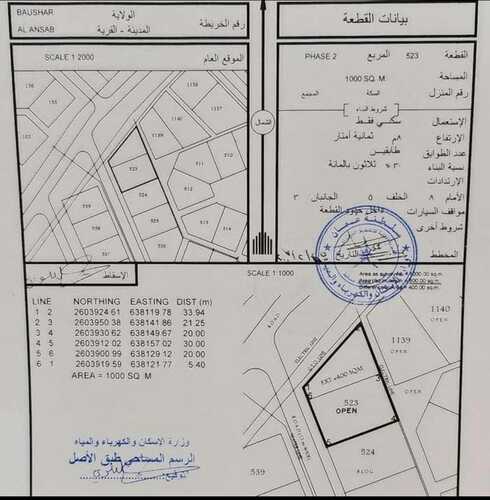 BAUSHAR
الولاية
رقم الخريطة
AL ANSAB
المدينة - القرية
SCALE 1:2000
الموقع العام
536
537
1139
1140
523
524
الشمال
بيانات القطعة
القطعة 523 المربع PHASE 2
المساحة 1000 SQ. M
رقم المنزل السكة المجمع
شروط البناء
الإستعمال سكني فقط
الإرتفاع ٨م ثمانية أمتار
عدد الطوابق طابقين
نسبة البناء ٣٠% ثلاثون بالمائة
الإرتدادات
الأمام ٨ الخلف ٥ الجانبان ٣
مواقف السيارات داخل حدود القطعة
شروط أخرى
المخطط
الإسقاط
LINE NORTHING EASTING DIST (m)
1 2 2603924.61 638119.78 33.94
2 3 2603950.38 638141.86 21.25
3 4 2603930.62 638149.67 20.00
4 5 2603912.02 638157.02 30.00
5 6 2603900.99 638129.12 20.00
6 1 2603919.59 638121.77 5.40
AREA = 1000 SQ. M
وزارة الاسكان والكهرباء والمياه
الرسم المساحي طبق الأصل
توقيع:
SCALE 1:1000
ROAD
1140
OPEN
1139
OPEN
EXT=400 SQM
523
OPEN
524
BLDG
539